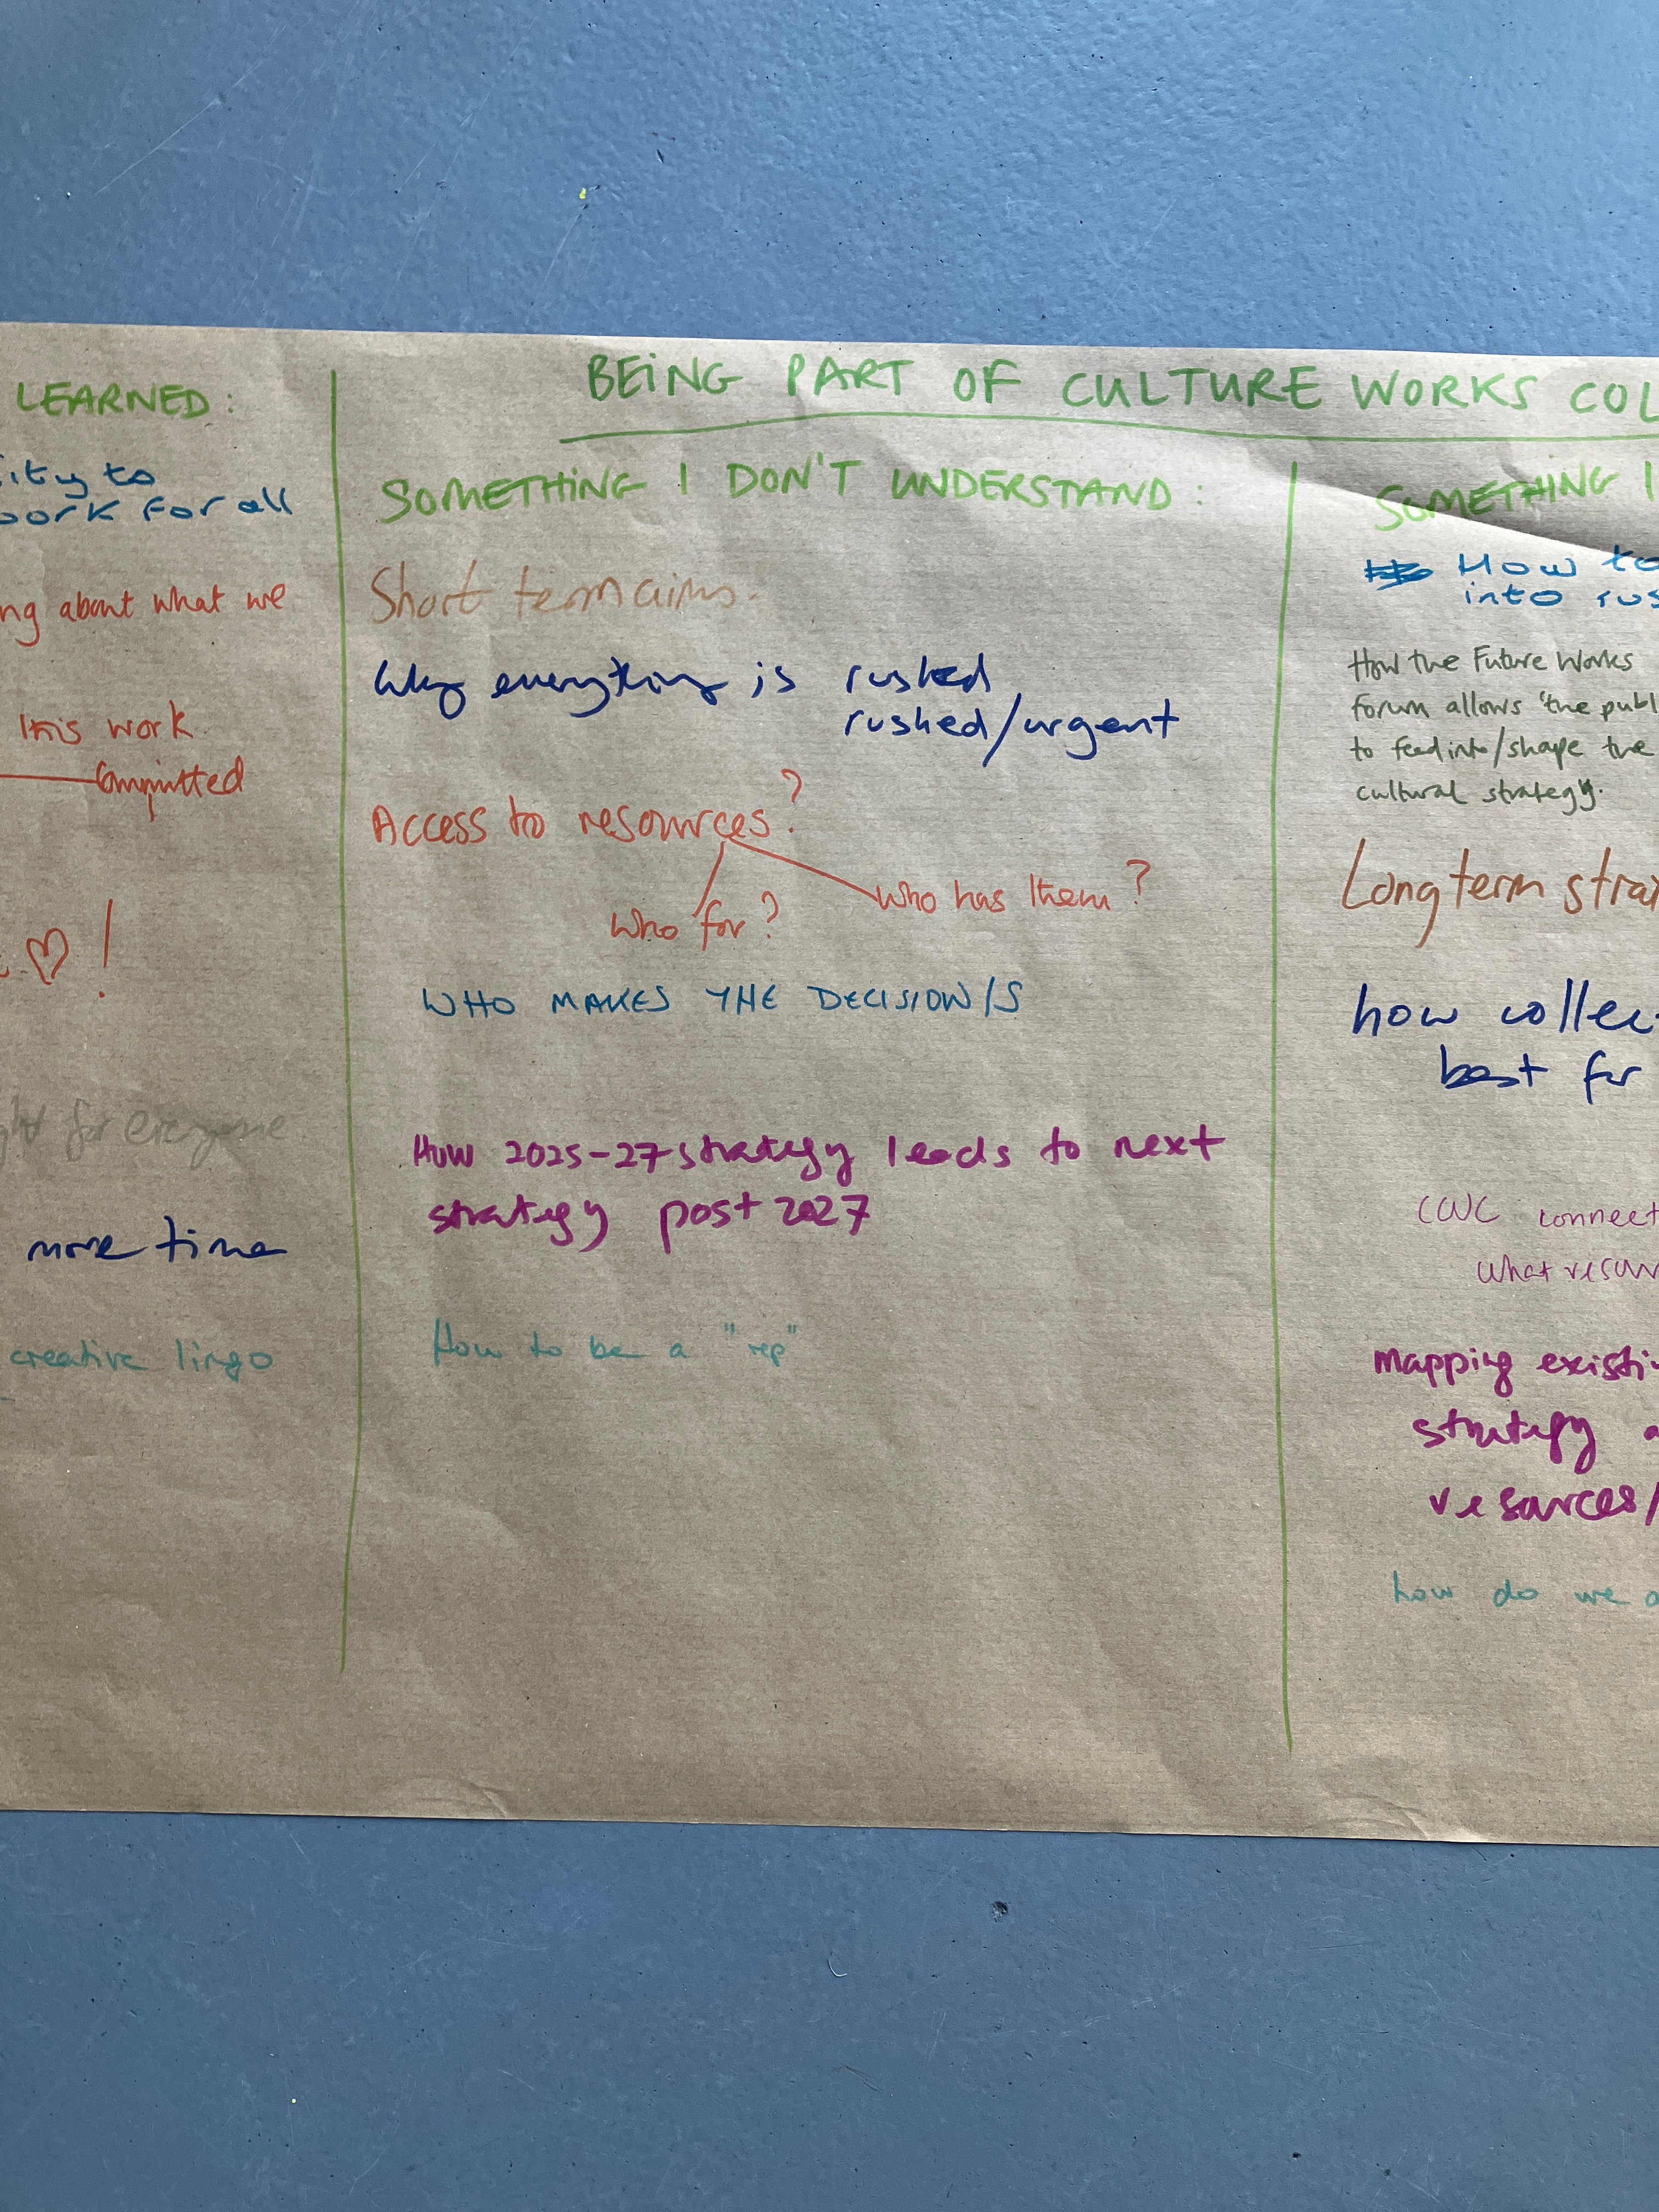 BEING PART OF CULTURE WORKS COL
LEARNED:
ity to
work for all
ng about what we
this work
committed
♡!
ght for everyone
more time
creative lingo
SOMETHING I DON'T UNDERSTAND:
Short term aims.
Why everything is rushed
rushed/urgent
Access to resources?
who for?
who has them?
WHO MAKES THE DECISION/S
How 2025-27 strategy leads to next
strategy post 2027
How to be a "rep"
SOMETHING I
How to
into rus
How the Future Works
forum allows 'the publ
to feed into/shape the
cultural strategy.
Long term stra
how collec
best for
CWC connect
What resour
mapping existi
strategy a
resources/
how do we a